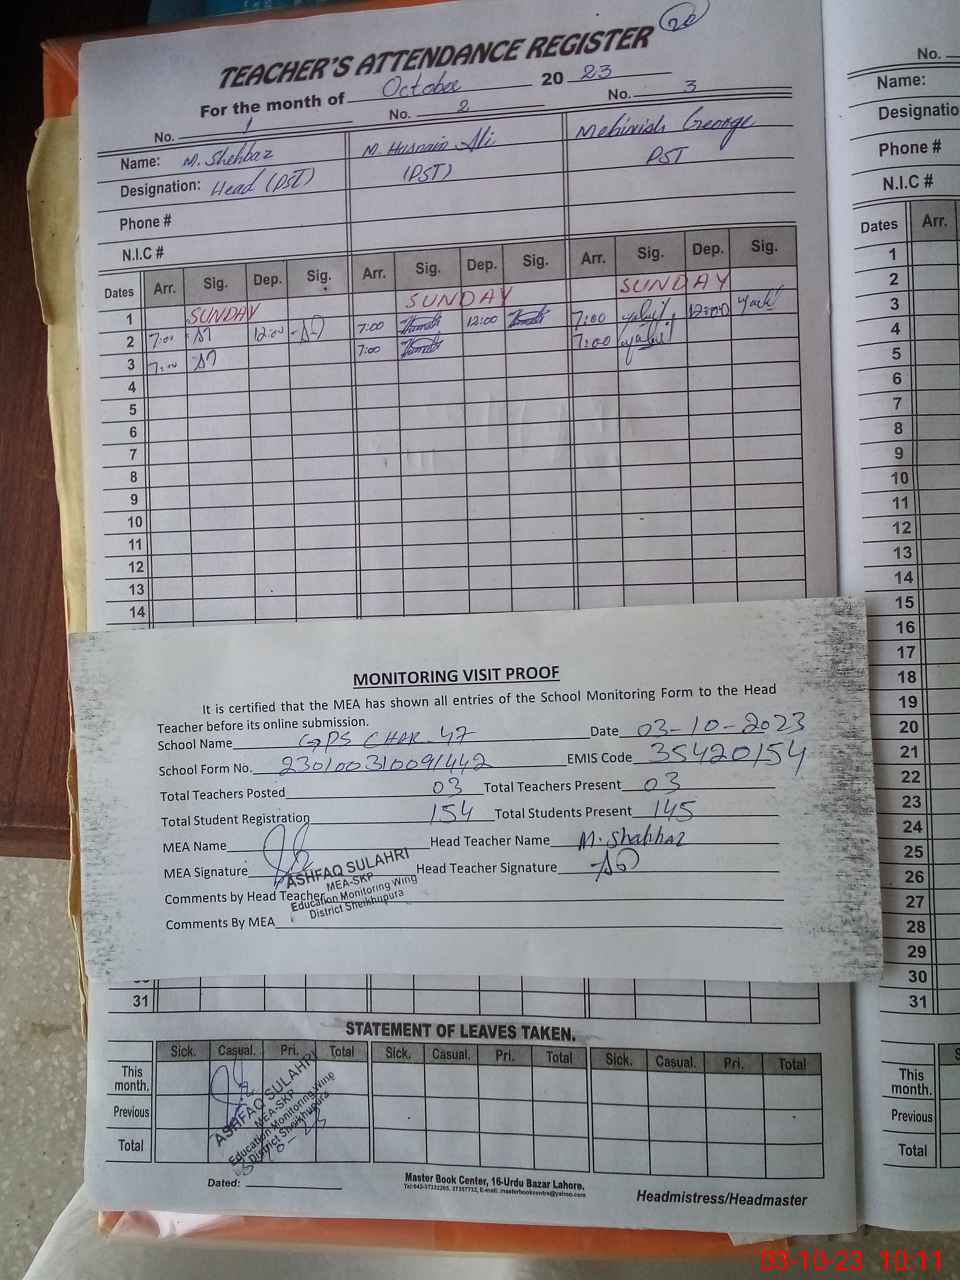 20
TEACHER'S ATTENDANCE REGISTER
For the month of October 20 23
No. 1 No. 2 No. 3
Name: M. Shehbaz M. Husnain Ali Mehinish George
Designation: Head (PST) (PST) PST
Phone #
N.I.C #
Dates Arr. Sig. Dep. Sig. Arr. Sig. Dep. Sig. Arr. Sig. Dep. Sig.
1 SUNDAY SUNDAY SUNDAY
2 7:00 12:00 7:00 12:00 7:00 12:00
3 7:00 7:00 7:00
4
5
6
7
8
9
10
11
12
13
14
MONITORING VISIT PROOF
It is certified that the MEA has shown all entries of the School Monitoring Form to the Head
Teacher before its online submission.
School Name GPS CHAR 47 Date 03-10-2023
School Form No. 230100310091442 EMIS Code 35420154
Total Teachers Posted 03 Total Teachers Present 03
Total Student Registration 154 Total Students Present 145
MEA Name Head Teacher Name M. Shahbaz
MEA Signature Head Teacher Signature
ASHFAQ SULAHRI
MEA-SKP
Education Monitoring Wing
District Sheikhupura
Comments by Head Teacher
Comments By MEA
31
STATEMENT OF LEAVES TAKEN.
Sick. Casual. Pri. Total Sick. Casual. Pri. Total Sick. Casual. Pri. Total
This
month.
Previous
Total
ASHFAQ SULAHRI
MEA-SKP
Education Monitoring Wing
District Sheikhupura
Dated:
Master Book Center, 16-Urdu Bazar Lahore.
Headmistress/Headmaster
No.
Name:
Designatio
Phone #
N.I.C #
Dates Arr.
1
2
3
4
5
6
7
8
9
10
11
12
13
14
15
16
17
18
19
20
21
22
23
24
25
26
27
28
29
30
31
S
This
month.
Previous
Total
03-10-23 10:11